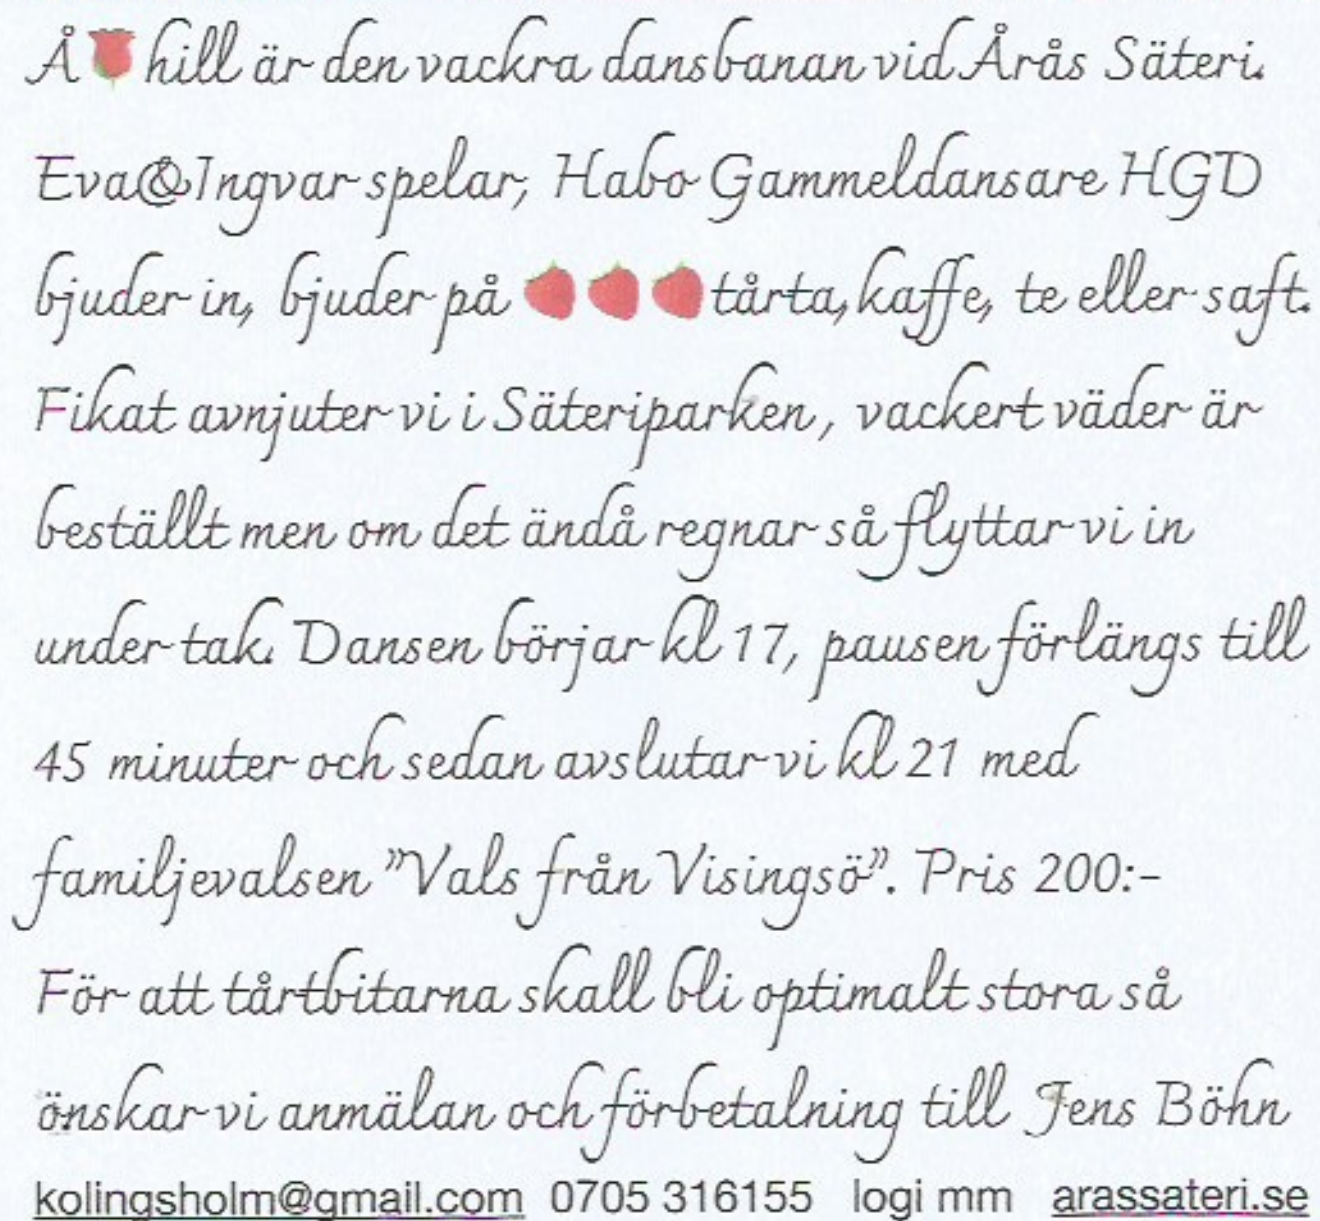 Å🌹hill är den vackra dansbanan vid Årås Säteri.
Eva&Ingvar spelar, Habo Gammeldansare HGD
bjuder in, bjuder på 🍓🍓🍓tårta, kaffe, te eller saft.
Fikat avnjuter vi i Säteriparken, vackert väder är
beställt men om det ändå regnar så flyttar vi in
under tak. Dansen börjar kl 17, pausen förlängs till
45 minuter och sedan avslutar vi kl 21 med
familjevalsen ”Vals från Visingsö”. Pris 200:-
För att tårtbitarna skall bli optimalt stora så
önskar vi anmälan och förbetalning till Jens Böhn
kolingsholm@gmail.com 0705 316155 logi mm arassateri.se